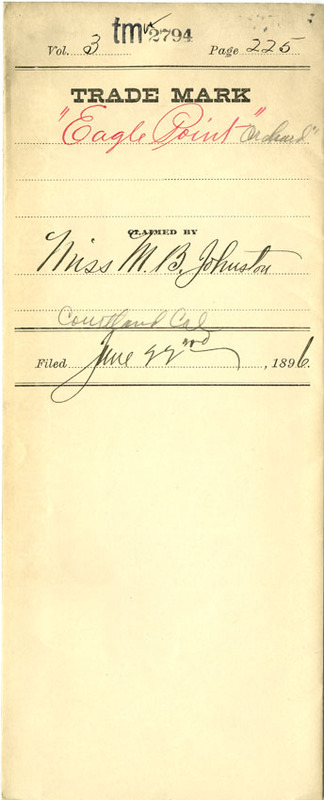 tm 2794
Vol. 3 Page 225
TRADE MARK
"Eagle Point" Orchard"
CLAIMED BY
Miss M. B. Johnston
Courtland Cal
Filed June 22nd, 1896.